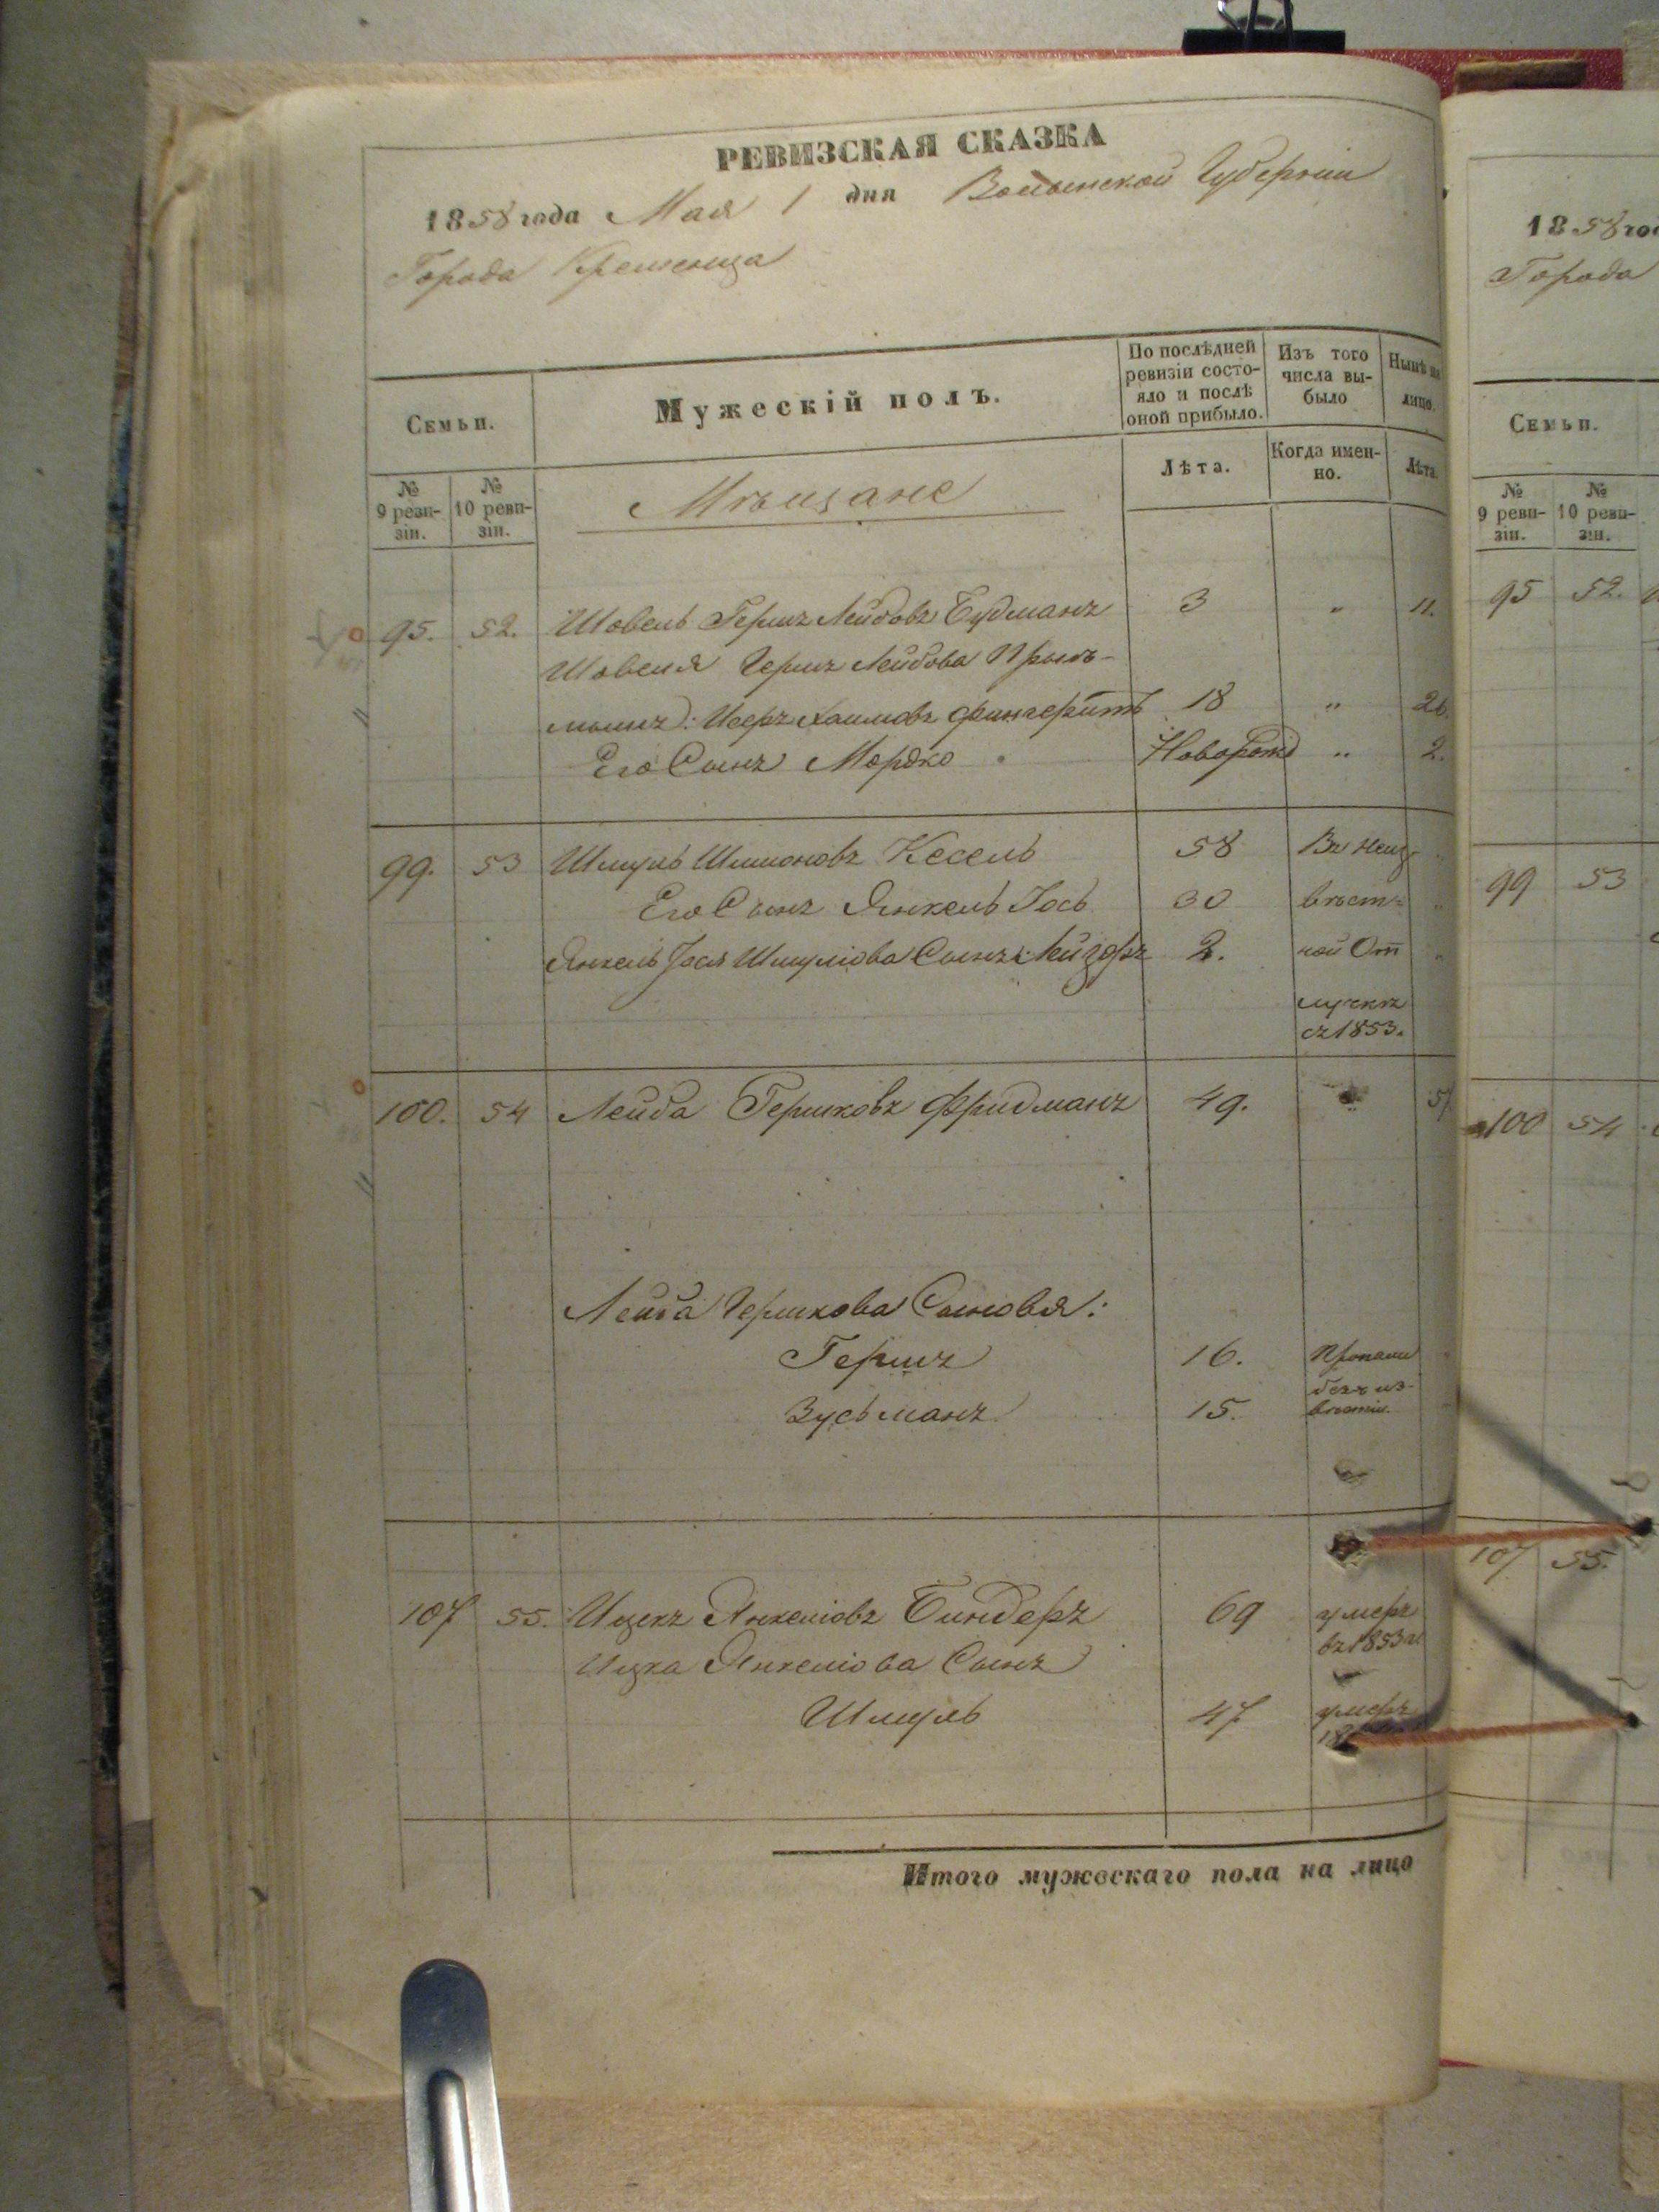 РЕВИЗСКАЯ СКАЗКА
1858 года Мая 1 дня Волынской Губернии
Города Кременца
Семьи.
Мужескій полъ.
По послѣдней ревизіи состо-
яло и послѣ оной прибыло.
Изъ того числа вы-
было
Нынѣ на лицо.
№ 9 реви-
зіи.
№ 10 реви-
зіи.
Мѣщане
Лѣта.
Когда имен-
но.
Лѣта.
95. 52. Шовель Гершъ Лейбовъ Будманъ 3 " 11.
Шовеля Гершъ Лейбова Прыем-
мышъ: Иосръ Хаимовъ 18 " 26.
Его Сынъ Мордко Новорожд " 2.
99. 53 Шмуль Шлиомовъ Кесель 58 Въ неиз-
Его Сынъ Янкель Іось 30 вѣст-
Янкель Іося Шмуліова Сынъ: Лейзоръ 2. ной От
лучкѣ
съ 1853.
100. 54 Лейба Гершковъ Фридманъ 49. 57
Лейба Гершкова Сыновья:
Гершъ 16. Пропали
безъ из-
Зусьманъ 15. вѣстіи.
107 55. Ицекъ Янкеліовъ Биндеръ 69 умеръ
въ 1853 г.
Ицка Янкеліова Сынъ
Шмуль 47 умеръ
Итого мужескаго пола на лицо
1858 год
Города
Семьи.
№ 9 реви-
зіи.
№ 10 реви-
зіи.
95 52.
99 53
100 54
107 55.